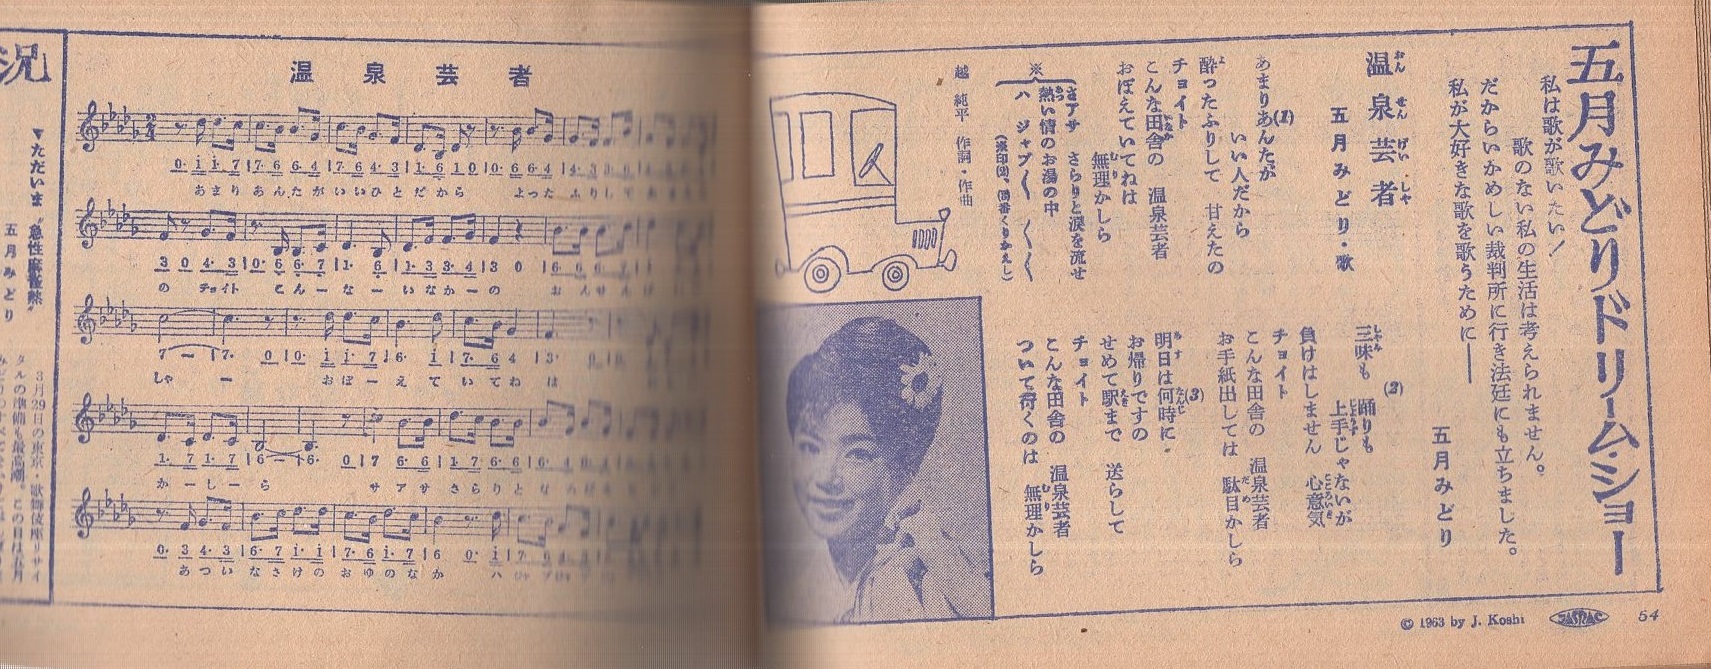 五月みどりドリーム・ショー
私は歌が歌いたい！
歌のない私の生活は考えられません。
だからいかめしい裁判所に行き法廷にも立ちました。
私が大好きな歌を歌うために――
五月みどり
温泉芸者
おんせんげいしゃ
五月みどり・歌
(1)
あまりあんたが
いい人だから
酔ったふりして　甘えたの
チョイト
こんな田舎の　温泉芸者
おぼえていてねは
無理かしら
※
さアサ　さらりと涙を流せ
熱い情のお湯の中
ハ　ジャブ〱　〱〱
越　純平　作詞・作曲
(2)
三味も　踊りも
上手じゃないが
負けはしません　心意気
チョイト
こんな田舎の　温泉芸者
お手紙出しては　駄目かしら
(3)
明日は何時に
お帰りですの
せめて駅まで　送らして
チョイト
こんな田舎の　温泉芸者
ついて行くのは　無理かしら
© 1963 by J. Koshi
JASRAC
54
温泉芸者
2
4
0 i i 7 7 6 6 4 7 6 4 3 1 6 1 0 0 6 6 4
あまり あんたが いいひと だから よった ふりして
3 0 4 3 0 6 6 7 1 6 1 3 3 4 3 0
の チョイト こんーなーいなかーの おんせんげ
7 ー 7 0 0 i i 7 6 i 7 6 4 3
しゃ ー おぼーえていてね は
1 7 1 7 6 ー 6 0 7 6 6 1 7 6 6
かーしーら サアサ さらりと な
0 3 4 3 6 7 i i 7 6 i 7 6 0 i
あつい なさけの おゆのな か ハ
況
▼ただいま〝急性麻雀熱〟
五月みどり
3月29日の東京・歌舞伎座リサイ
タルの準備も最高潮。この日は五月